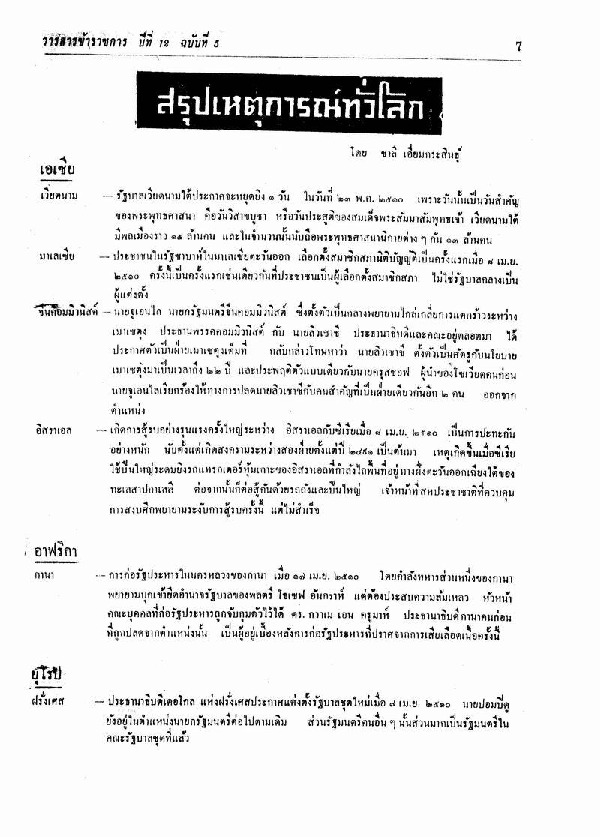 วารสารข้าราชการ ปีที่ 12 ฉบับที่ 5 7
สรุปเหตุการณ์ทั่วโลก
โดย ชาลี เอี่ยมกระสินธุ์
เอเซีย
เวียดนาม — รัฐบาลเวียดนามใต้ประกาศจะหยุดยิง ๑ วัน ในวันที่ ๒๓ พ.ค. ๒๕๑๐ เพราะวันนั้นเป็นวันสำคัญ
ของพระพุทธศาสนา คือวันวิสาขบูชา หรือวันประสูติของสมเด็จพระสัมมาสัมพุทธเจ้า เวียดนามใต้
มีพลเมืองราว ๑๕ ล้านคน และในจำนวนนั้นนับถือพระพุทธศาสนานิกายต่าง ๆ กัน ๑๓ ล้านคน
มาเลเซีย — ประชาชนในรัฐซาบาห์ในมาเลเซียตะวันออก เลือกตั้งสมาชิกสภานิติบัญญัติเป็นครั้งแรกเมื่อ ๘ เม.ย.
๒๕๑๐ ครั้งนี้เป็นครั้งแรกเช่นเดียวกันที่ประชาชนเป็นผู้เลือกตั้งสมาชิกสภา ไม่ใช่รัฐบาลกลางเป็น
ผู้แต่งตั้ง
จีนคอมมิวนิสต์ — นายจูเอนไล นายกรัฐมนตรีจีนคอมมิวนิสต์ ซึ่งตั้งตัวเป็นกลางพยายามไกล่เกลี่ยการแตกร้าวระหว่าง
เมาเซตุง ประธานพรรคคอมมิวนิสต์ กับ นายลิวเชาชี ประธานาธิบดีและคณะอยู่ตลอดมา ได้
ประกาศตัวเป็นฝ่ายเมาเซตุงเต็มที่ กลับกล่าวโทษหาว่า นายลิวเชาชี ตั้งตัวเป็นศัตรูกับนโยบาย
เมาเซตุงมาเป็นเวลาถึง ๒๒ ปี และประพฤติตัวแบบเดียวกับนายครุสชอฟ ผู้นำของโซเวียตคนก่อน
นายจูเอนไลเรียกร้องให้ทางการปลดนายลิวเชาชีกับคนสำคัญที่เป็นฝ่ายเดียวกันอีก ๒ คน ออกจาก
ตำแหน่ง
อิสราเอล — เกิดการสู้รบอย่างรุนแรงครั้งใหญ่ระหว่าง อิสราเอลกับซีเรียเมื่อ ๘ เม.ย. ๒๕๑๐ เป็นการปะทะกัน
อย่างหนัก นับตั้งแต่เกิดสงครามระหว่างสองฝ่ายตั้งแต่ปี ๒๔๙๑ เป็นต้นมา เหตุเกิดขึ้นเมื่อซีเรีย
ใช้ปืนใหญ่ระดมยิงรถแทรกเตอร์หุ้มเกาะของอิสราเอลที่กำลังไถพื้นที่อยู่ทางฝั่งตะวันออกเฉียงใต้ของ
ทะเลสาปกาเลลี ต่อจากนั้นก็ต่อสู้กันด้วยรถถังและปืนใหญ่ เจ้าหน้าที่สหประชาชาติที่ควบคุม
การสงบศึกพยายามระงับการสู้รบครั้งนี้ แต่ไม่สำเร็จ
อาฟริกา
กานา — การก่อรัฐประหารในนครหลวงของกานา เมื่อ ๑๗ เม.ย. ๒๕๑๐ โดยกำลังทหารส่วนหนึ่งของกานา
พยายามบุกเข้ายึดอำนาจรัฐบาลของพลตรี โยเซฟ อันคราห์ แต่ต้องประสบความล้มเหลว หัวหน้า
คณะบุคคลที่ก่อรัฐประหารถูกจับกุมตัวไว้ได้ ดร. กวาเม เอน ครูมาห์ ประธานาธิบดีกานาคนก่อน
ที่ถูกปลดจากตำแหน่งนั้น เป็นผู้อยู่เบื้องหลังการก่อรัฐประหารที่ปราศจากการเสียเลือดเนื้อครั้งนี้
ยุโรป
ฝรั่งเศส — ประธานาธิบดีเดอโกล แห่งฝรั่งเศสประกาศแต่งตั้งรัฐบาลชุดใหม่เมื่อ ๘ เม.ย. ๒๕๑๐ นายปอมปิดู
ยังอยู่ในตำแหน่งนายกรัฐมนตรีต่อไปตามเดิม ส่วนรัฐมนตรีคนอื่น ๆ นั้นส่วนมากเป็นรัฐมนตรีใน
คณะรัฐบาลชุดที่แล้ว